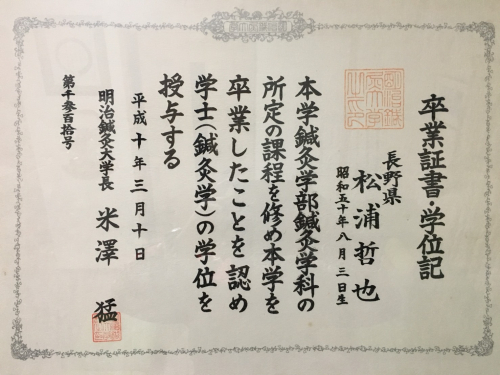 卒業証書・学位記
長野県
松浦哲也
昭和五十年八月三日生
本学鍼灸学部鍼灸学科の
所定の課程を修め本学を
卒業したことを認め
学士(鍼灸学)の学位を
授与する
平成十年三月十日
明治鍼灸大学長 米澤 猛
第千参百拾号